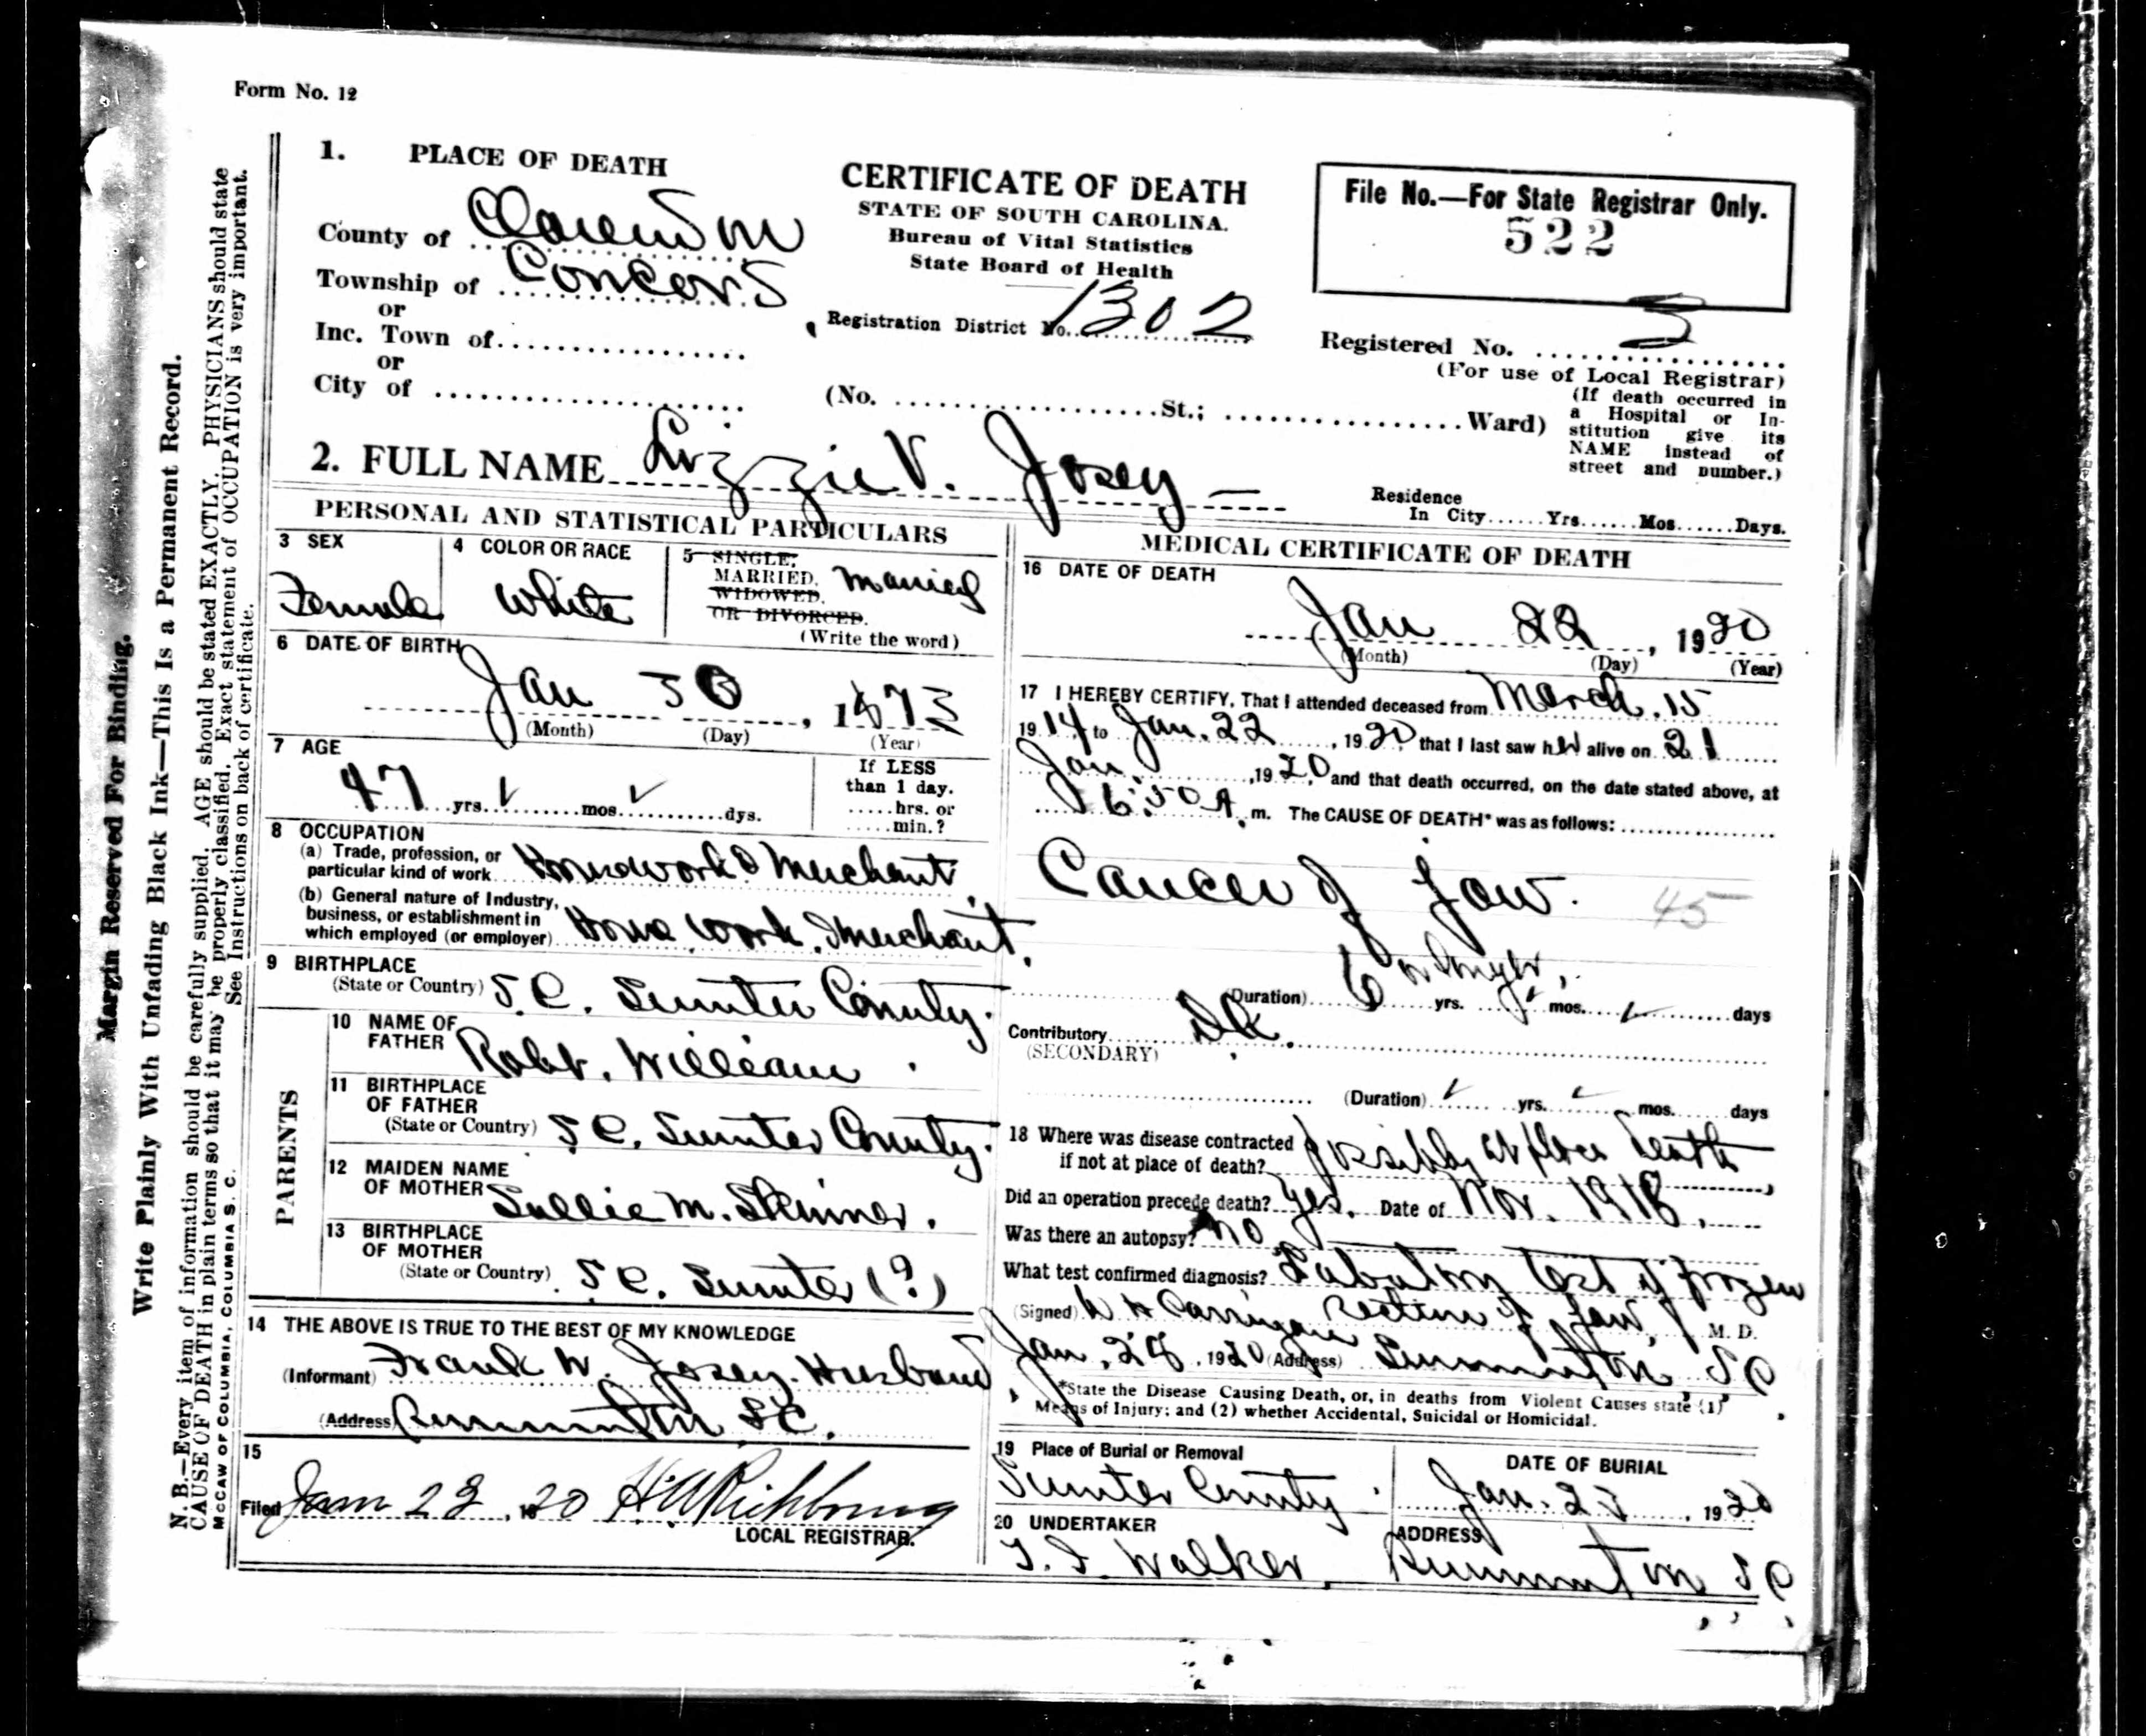 Form No. 12
1. PLACE OF DEATH
County of Clarendon
Township of Concord
or
Inc. Town of
or
City of
CERTIFICATE OF DEATH
STATE OF SOUTH CAROLINA.
Bureau of Vital Statistics
State Board of Health
Registration District No. 1302
File No.—For State Registrar Only.
522
Registered No. 3
(For use of Local Registrar)
(No. St.; Ward)
(If death occurred in
a Hospital or In-
stitution give its
NAME instead of
street and number.)
2. FULL NAME Lizzie V. Josey —
Residence
In City......Yrs......Mos......Days.
PERSONAL AND STATISTICAL PARTICULARS
3 SEX
Female
4 COLOR OR RACE
White
5 SINGLE,
MARRIED, Married
WIDOWED,
OR DIVORCED.
(Write the word)
6 DATE OF BIRTH
Jan 30, 1873
(Month) (Day) (Year)
7 AGE
47 yrs. ✓ mos. ✓ dys.
If LESS
than 1 day.
.....hrs. or
.....min.?
8 OCCUPATION
(a) Trade, profession, or
particular kind of work Housework & Merchant
(b) General nature of Industry,
business, or establishment in
which employed (or employer) House work, Merchant.
9 BIRTHPLACE
(State or Country) S.C. Sumter County.
PARENTS
10 NAME OF
FATHER Robt. William
11 BIRTHPLACE
OF FATHER
(State or Country) S C. Sumter County.
12 MAIDEN NAME
OF MOTHER Sallie M. Skinner.
13 BIRTHPLACE
OF MOTHER
(State or Country) S C. Sumter (?)
14 THE ABOVE IS TRUE TO THE BEST OF MY KNOWLEDGE
(Informant) Frank W. Josey. Husband
(Address) Summerton S.C.
15
Filed Jan 28, 1920 H.W. Richbourg
LOCAL REGISTRAR.
MEDICAL CERTIFICATE OF DEATH
16 DATE OF DEATH
Jan 22, 1920
(Month) (Day) (Year)
17 I HEREBY CERTIFY, That I attended deceased from March. 15
1914 to Jan. 22, 1920, that I last saw her alive on 21
Jan., 1920 and that death occurred, on the date stated above, at
6:50 A. m. The CAUSE OF DEATH* was as follows:
Cancer of Jaw. 45
or longer,
(Duration) 6 yrs. ✓ mos. ✓ days
Contributory
(SECONDARY)
(Duration) ✓ yrs. ✓ mos. days
18 Where was disease contracted
if not at place of death? possibly at place death
Did an operation precede death? yes. Date of Nov. 1918.
Was there an autopsy? no
What test confirmed diagnosis? Labratory test of frozen
section of Jaw,
(Signed) W H Carrigan M. D.
Jan. 28, 1920 (Address) Summerton, S C
*State the Disease Causing Death, or, in deaths from Violent Causes state (1)
Means of Injury; and (2) whether Accidental, Suicidal or Homicidal.
19 Place of Burial or Removal
Sumter County
DATE OF BURIAL
Jan. 23, 1920
20 UNDERTAKER
Walker.
ADDRESS
Summerton S C
Margin Reserved For Binding.
Write Plainly With Unfading Black Ink—This Is a Permanent Record.
N. B.—Every item of information should be carefully supplied. AGE should be stated EXACTLY. PHYSICIANS should state
CAUSE OF DEATH in plain terms so that it may be properly classified. Exact statement of OCCUPATION is very important.
See Instructions on back of certificate.
McCAW OF COLUMBIA, COLUMBIA S. C.